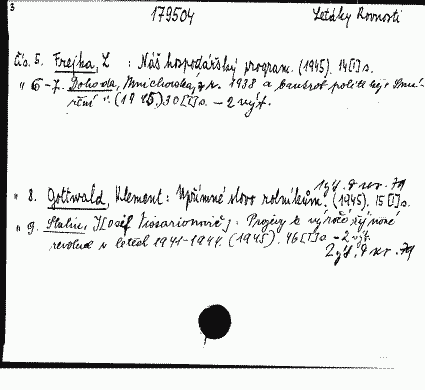 3
179504 Letáky Rovnosti
Čís. 5. Frejka, L : Náš hospodářský program. (1945). 14[I]s.
" 6-7. Dohoda, Mnichovská, z r. 1938 a bankrot politiky "Smí-
rční". (1945) 30[I]s. - 2 výt.
1 výt. 8 kr. 79
" 8. Gottwald, Klement: Upřímné slovo rolníkům. (1945). 15[I]s.
" 9. Stalin, J[osif Vissarionovič]: Projevy k výročí říjnové
revoluce v letech 1941-1944. (1945). 46[I]s. - 2 výt.
2 výt. 9 kr. 79